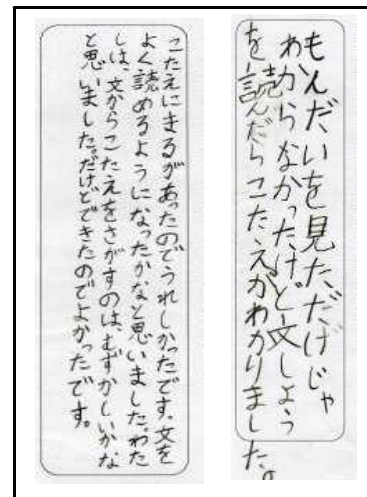 もんだいを見ただけじゃ
わからなかったけど文しょう
を読んだらこたえがわかりました。
こたえにまるがあったのでうれしかったです。文を
よく読めるようになったかなと思いました。わた
しは、文からこたえをさがすのは、むずかしいかな
と思いました。だけどできたのでよかったです。